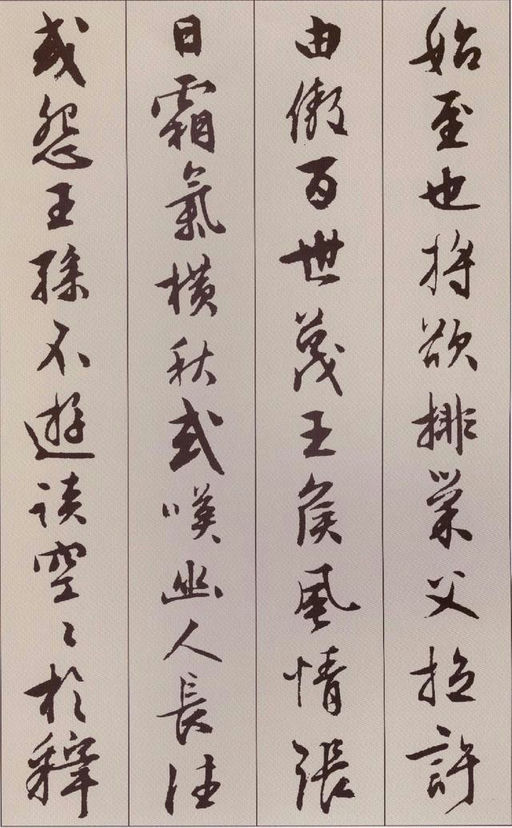 始至也将欲排巢父拉許
由傲百世蔑王侯風情張
日霜氣横秋或嘆幽人長往
或怨王孫不遊談空〻於釋